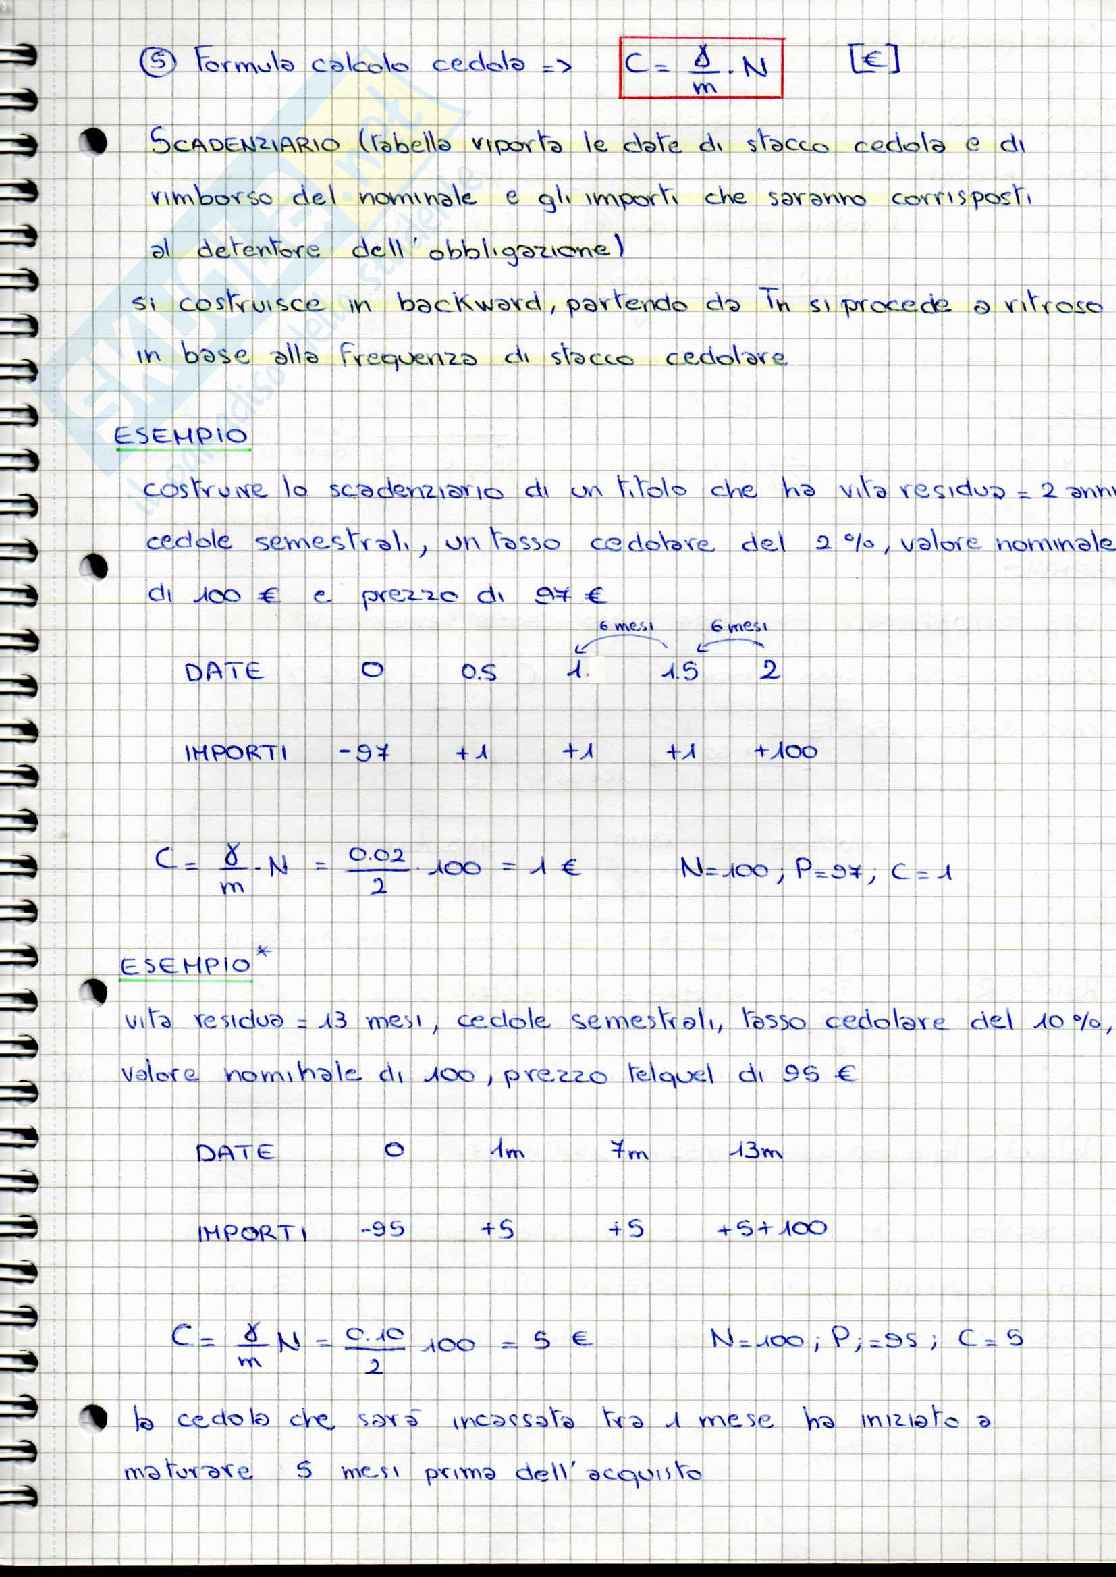 ⑤ Formula calcolo cedola => C = γ/m · N [€]
SCADENZIARIO (tabella riporta le date di stacco cedola e di
rimborso del nominale e gli importi che saranno corrisposti
al detentore dell'obbligazione)
si costruisce in backward, partendo da Tn si procede a ritroso
in base alla frequenza di stacco cedolare
ESEMPIO
costruire lo scadenziario di un titolo che ha vita residua = 2 anni
cedole semestrali, un tasso cedolare del 2%, valore nominale
di 100 € e prezzo di 97 €
6 mesi 6 mesi
DATE 0 0.5 1. 1.5 2
IMPORTI -97 +1 +1 +1 +100
C = γ/m · N = 0.02/2 · 100 = 1 € N=100; P=97; C=1
ESEMPIO*
vita residua = 13 mesi, cedole semestrali, tasso cedolare del 10%,
valore nominale di 100, prezzo telquel di 95 €
DATE 0 1m 7m 13m
IMPORTI -95 +5 +5 +5+100
C = γ/m N = 0.10/2 100 = 5 € N=100; P;=95; C=5
la cedola che sarà incassata tra 1 mese ha iniziato a
maturare 5 mesi prima dell'acquisto